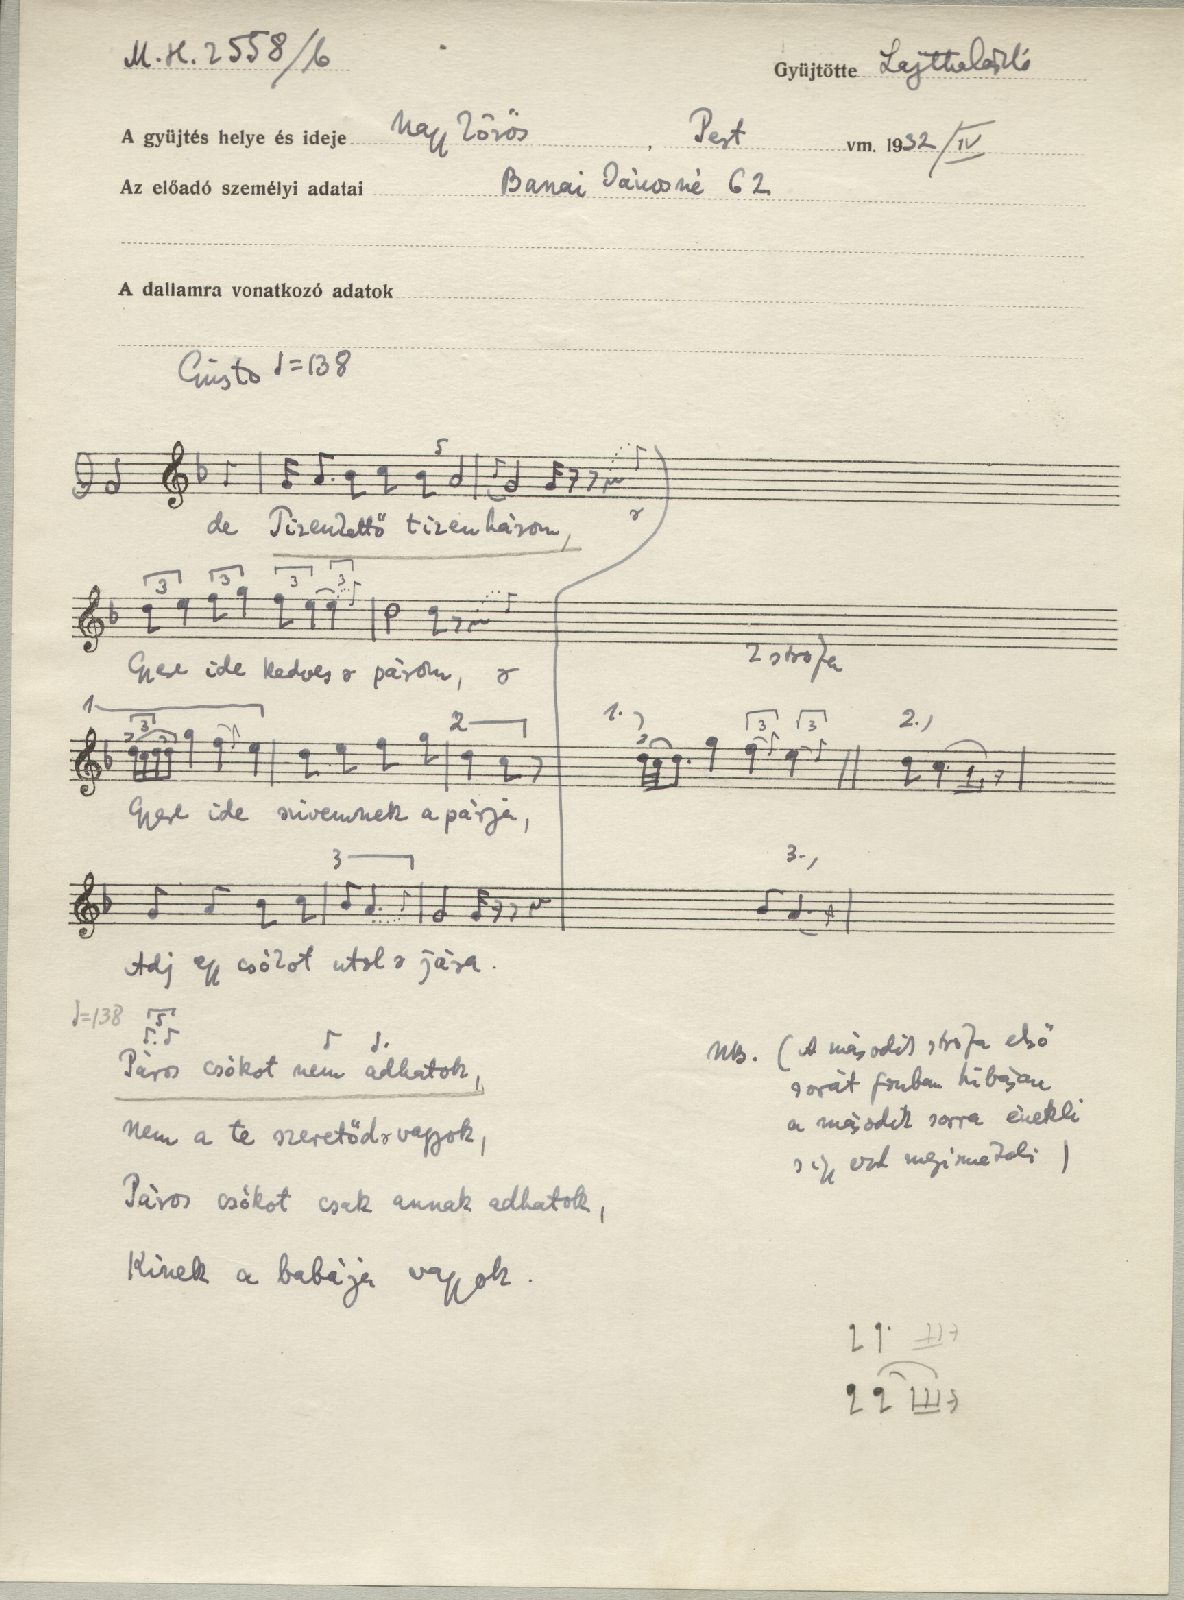 M.H. 2558/b
Gyüjtötte Lajtha László
A gyüjtés helye és ideje Nagykőrös, Pest vm. 1932/IV
Az előadó személyi adatai Banai Dánosné 62
A dallamra vonatkozó adatok
Giusto ♩=138
5
de Tizenkettő tizenhárom,
3 3 3 3
Gyere ide kedves a párom, a
2 strofa
1 3 2 1. 3 3 2.
Gyere ide szivemnek a párja,
3 3.
Adj egy csókot utol a jára.
♩=138 5
Páros csókot nem adhatok,
Nem a te szeretőd a vagyok,
Páros csókot csak annak adhatok,
Kinek a babája vagyok.
NB. (A második strofa első
sorát fonban hibásan
a második sorra énekli
s így ezt megismétli)